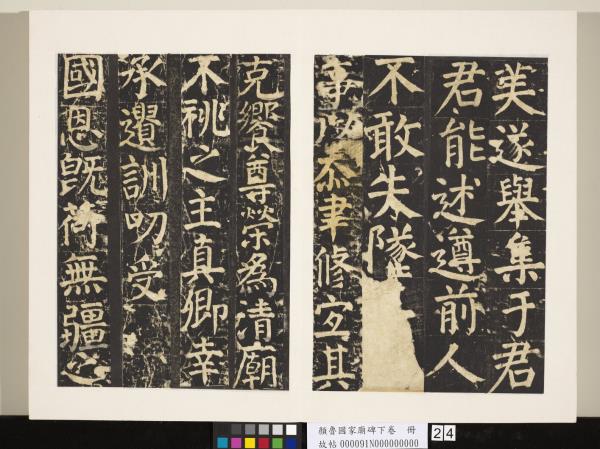 美遂舉集于君
君能述遵前人
不敢失隧
事忝聿修宜其
克饗尊榮為清廟
不祧之主真卿幸
承遺訓叨受
國恩旣荷無疆之
顏魯國家廟碑下卷 冊
故帖 000091N000000000
24